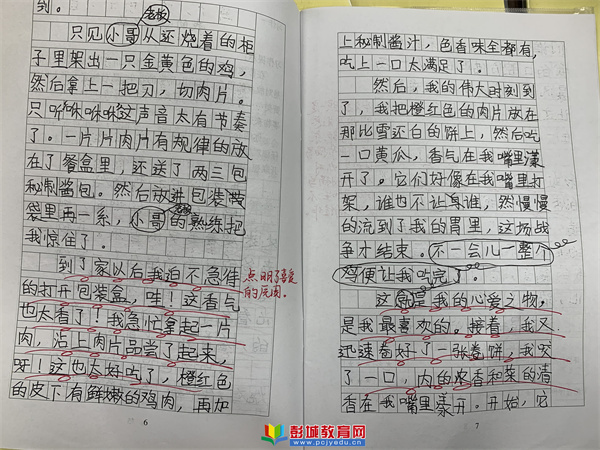 到。
只见小哥从还烧着的柜
老板
子里架出一只金黄色的鸡，
然后拿上一把刀，切肉片。
只听咻咻咻这声音太有节奏
了。一片片肉片有规律的放
在了餐盒里，还送了两三包
秘制酱包。然后放进包装
袋里再一系，小哥的熟练把
老板
我惊住了。
到了家以后我迫不急待
的打开包装盒，哇！这香气
也太香了！我急忙拿起一片
肉，沾上肉片品尝了起来，
呀！这也太好吃了，橙红色
的皮下有鲜嫩的鸡肉，再加
点明了喜爱
的原因。
6
上秘制酱汁，色香味全都有，
吃上一口太满足了。
然后，我的伟大时刻到
了，我把橙红色的肉片放在
那比雪还白的饼上，然后吃
一口黄瓜，香气在我嘴里漾
开了。它们好像在我嘴里打
架，谁也不让谁，然慢慢
的流到了我的胃里，这场战
争才结束。不一会儿一整个
鸡便让我吃完了。
这就是我的心爱之物，
是我最喜欢的。接着，我又
迅速卷好了一张卷饼，我咬
了一口，肉的浓香和菜的清
香在我嘴里漾开。开始，它
7
彭城教育网
www.pcjyedu.cn